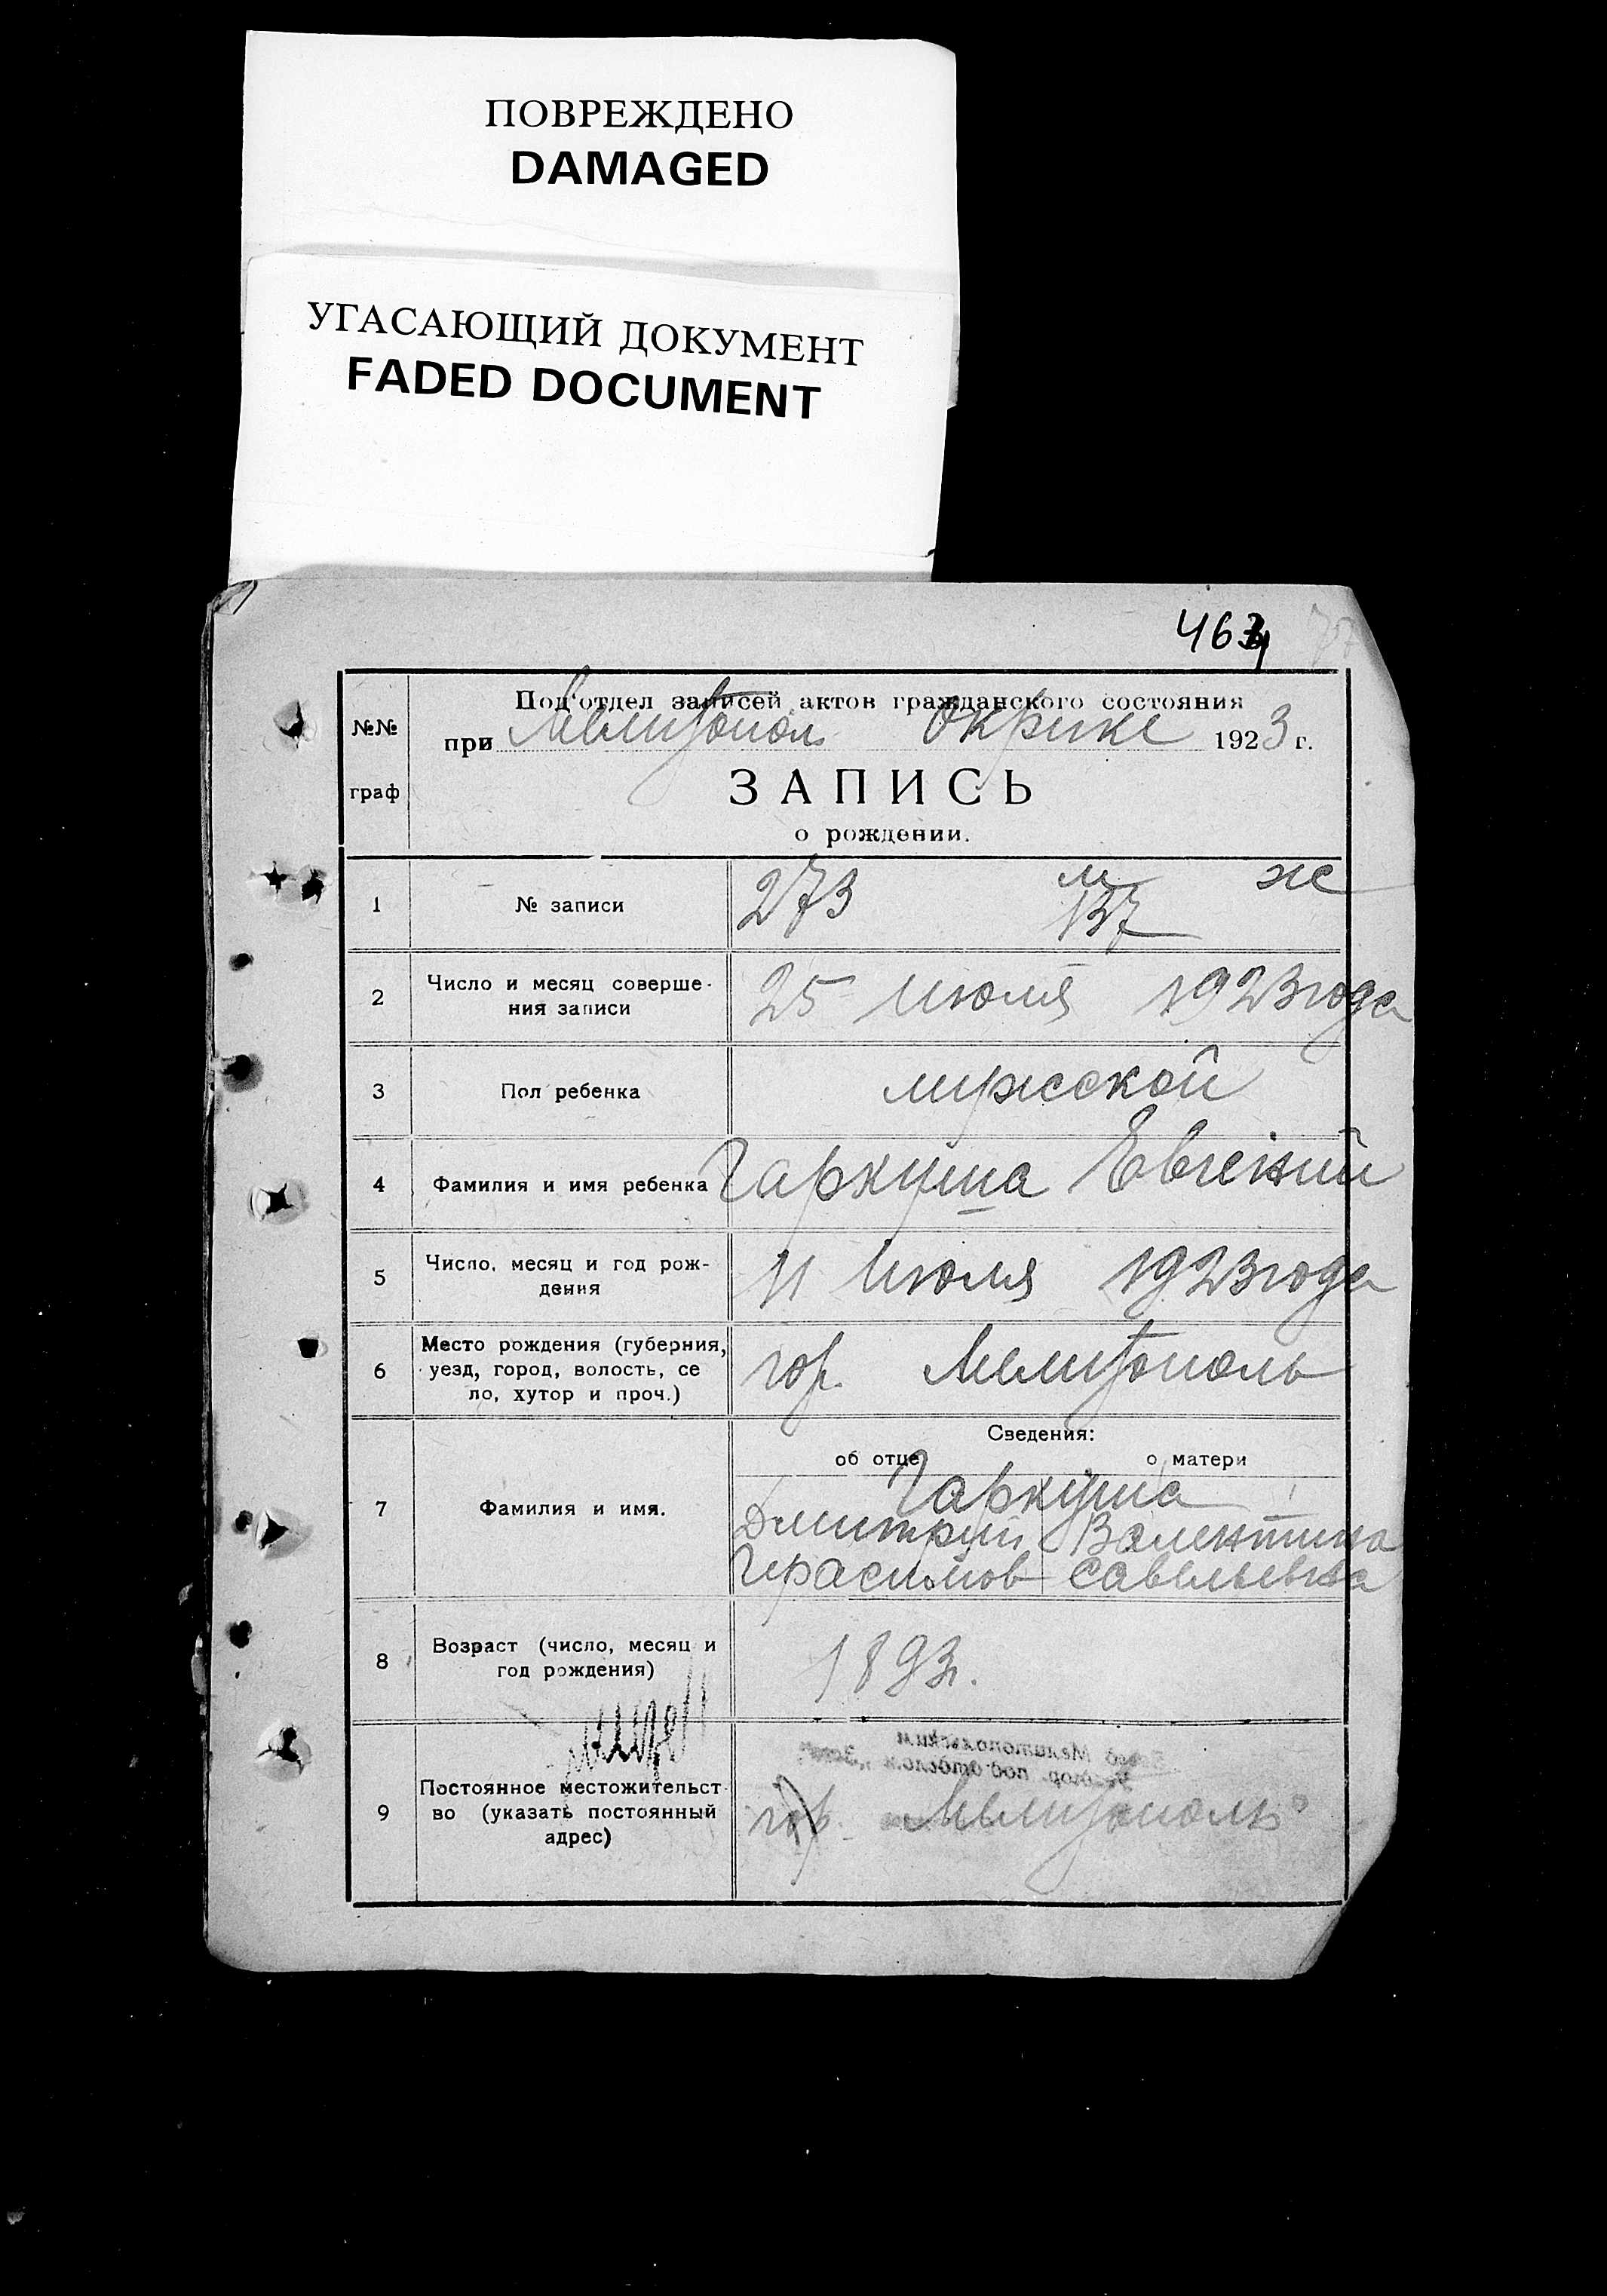 ПОВРЕЖДЕНО
DAMAGED
УГАСАЮЩИЙ ДОКУМЕНТ
FADED DOCUMENT
463
№№ граф
Под'отдел записей актов гражданского состояния
при Мелитопол Окрике 1923 г.
ЗАПИСЬ
о рождении.
1 № записи 273 м 137 ж
2 Число и месяц соверше-
ния записи 25 Июля 1923 года
3 Пол ребенка мужской
4 Фамилия и имя ребенка Гаркуша Евгений
5 Число, месяц и год рож-
дения 11 Июля 1923 года
6 Место рождения (губерния,
уезд, город, волость, се
ло, хутор и проч.) гор. Мелитополь
Сведения:
об отце о матери
7 Фамилия и имя. Гаркуша
Дмитрий Валентина
Герасимов Савельевна
8 Возраст (число, месяц и
год рождения) 1893г.
9 Постоянное местожительст-
во (указать постоянный
адрес) гор. Мелитополь